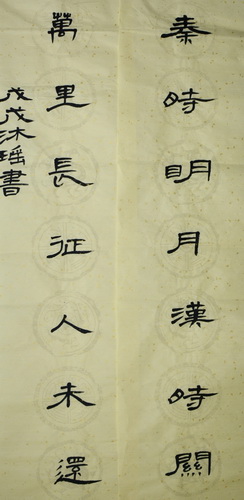 秦時明月漢時關
萬里長征人未還
戊戌沐瑶書